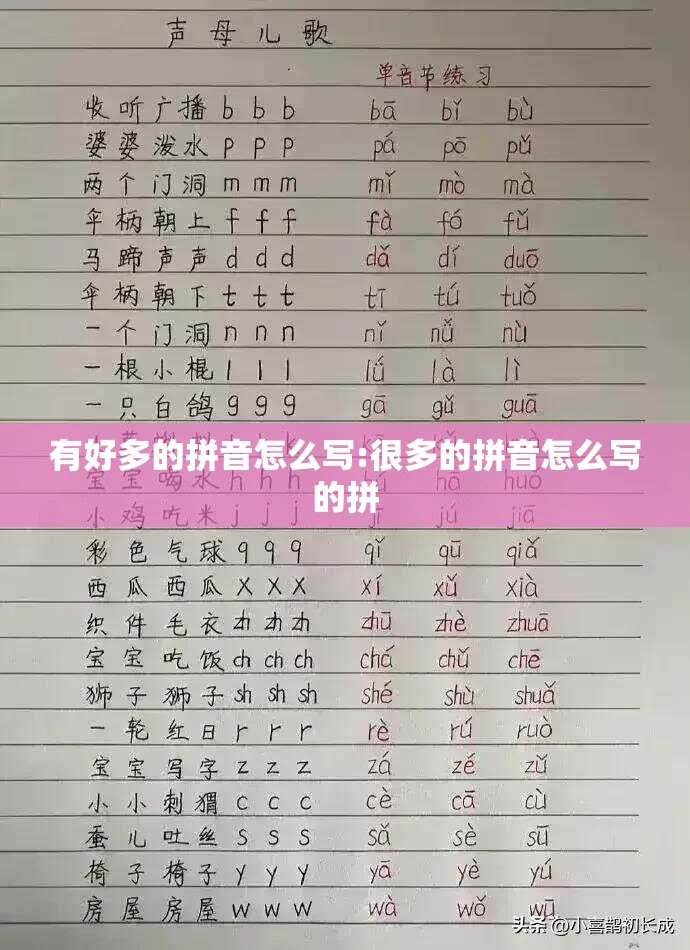 声母儿歌
单音节练习
收听广播 b b b bā bǐ bù
婆婆泼水 p p p pá pō pǔ
两个门洞 m m m mǐ mò mà
伞柄朝上 f f f fà fó fǔ
马蹄声声 d d d dǎ dí duō
伞柄朝下 t t t tī tú tuǒ
一个门洞 n n n nǐ nǚ nù
一根小棍 l l l lǘ là lì
一只白鸽 g g g gā gǔ guā
有好多的拼音怎么写:很多的拼音怎么写
的拼
宝宝喝水 h h h
小鸡吃米 j j j jú jiā
彩色气球 q q q qǐ qū qiǎ
西瓜西瓜 x x x xí xǔ xià
织件毛衣 zh zh zh zhū zhè zhuā
宝宝吃饭 ch ch ch chá chǔ chē
狮子狮子 sh sh sh shé shù shuǎ
一轮红日 r r r rè rú ruò
宝宝写字 z z z zá zě zǔ
小小刺猬 c c c cè cā cù
蚕儿吐丝 s s s sǎ sè sū
椅子椅子 y y y yā yè yú
房屋房屋 w w w wà wǒ wū
头条 @小喜鹊初长成